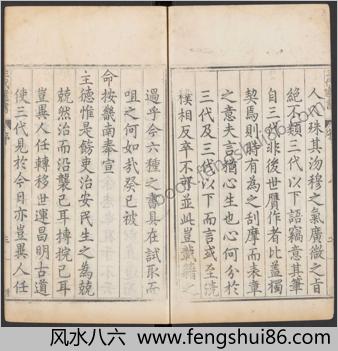 人人珠其汤穆之氣廣微之音
絶不類三代以下語竊意其筆
自三代非後世贋作者比盖獨
契焉則時有為之刮摩而表章
之意夫言猶心生也心何分於
三代及三代以下而言或至澆
樸相反卒不可並此豈載籍之
過乎今六種之書具在試取而
咀之何如哉癸巳被
命按畿南奉宣
主德惟是飭吏治安民生之為兢
兢然治而沿襲已耳摶捖已耳
豈異人任轉移世運昌明古道
使三代見於今日亦豈異人任
序
序
三
book.com
風水八六-www.fengshui86.com